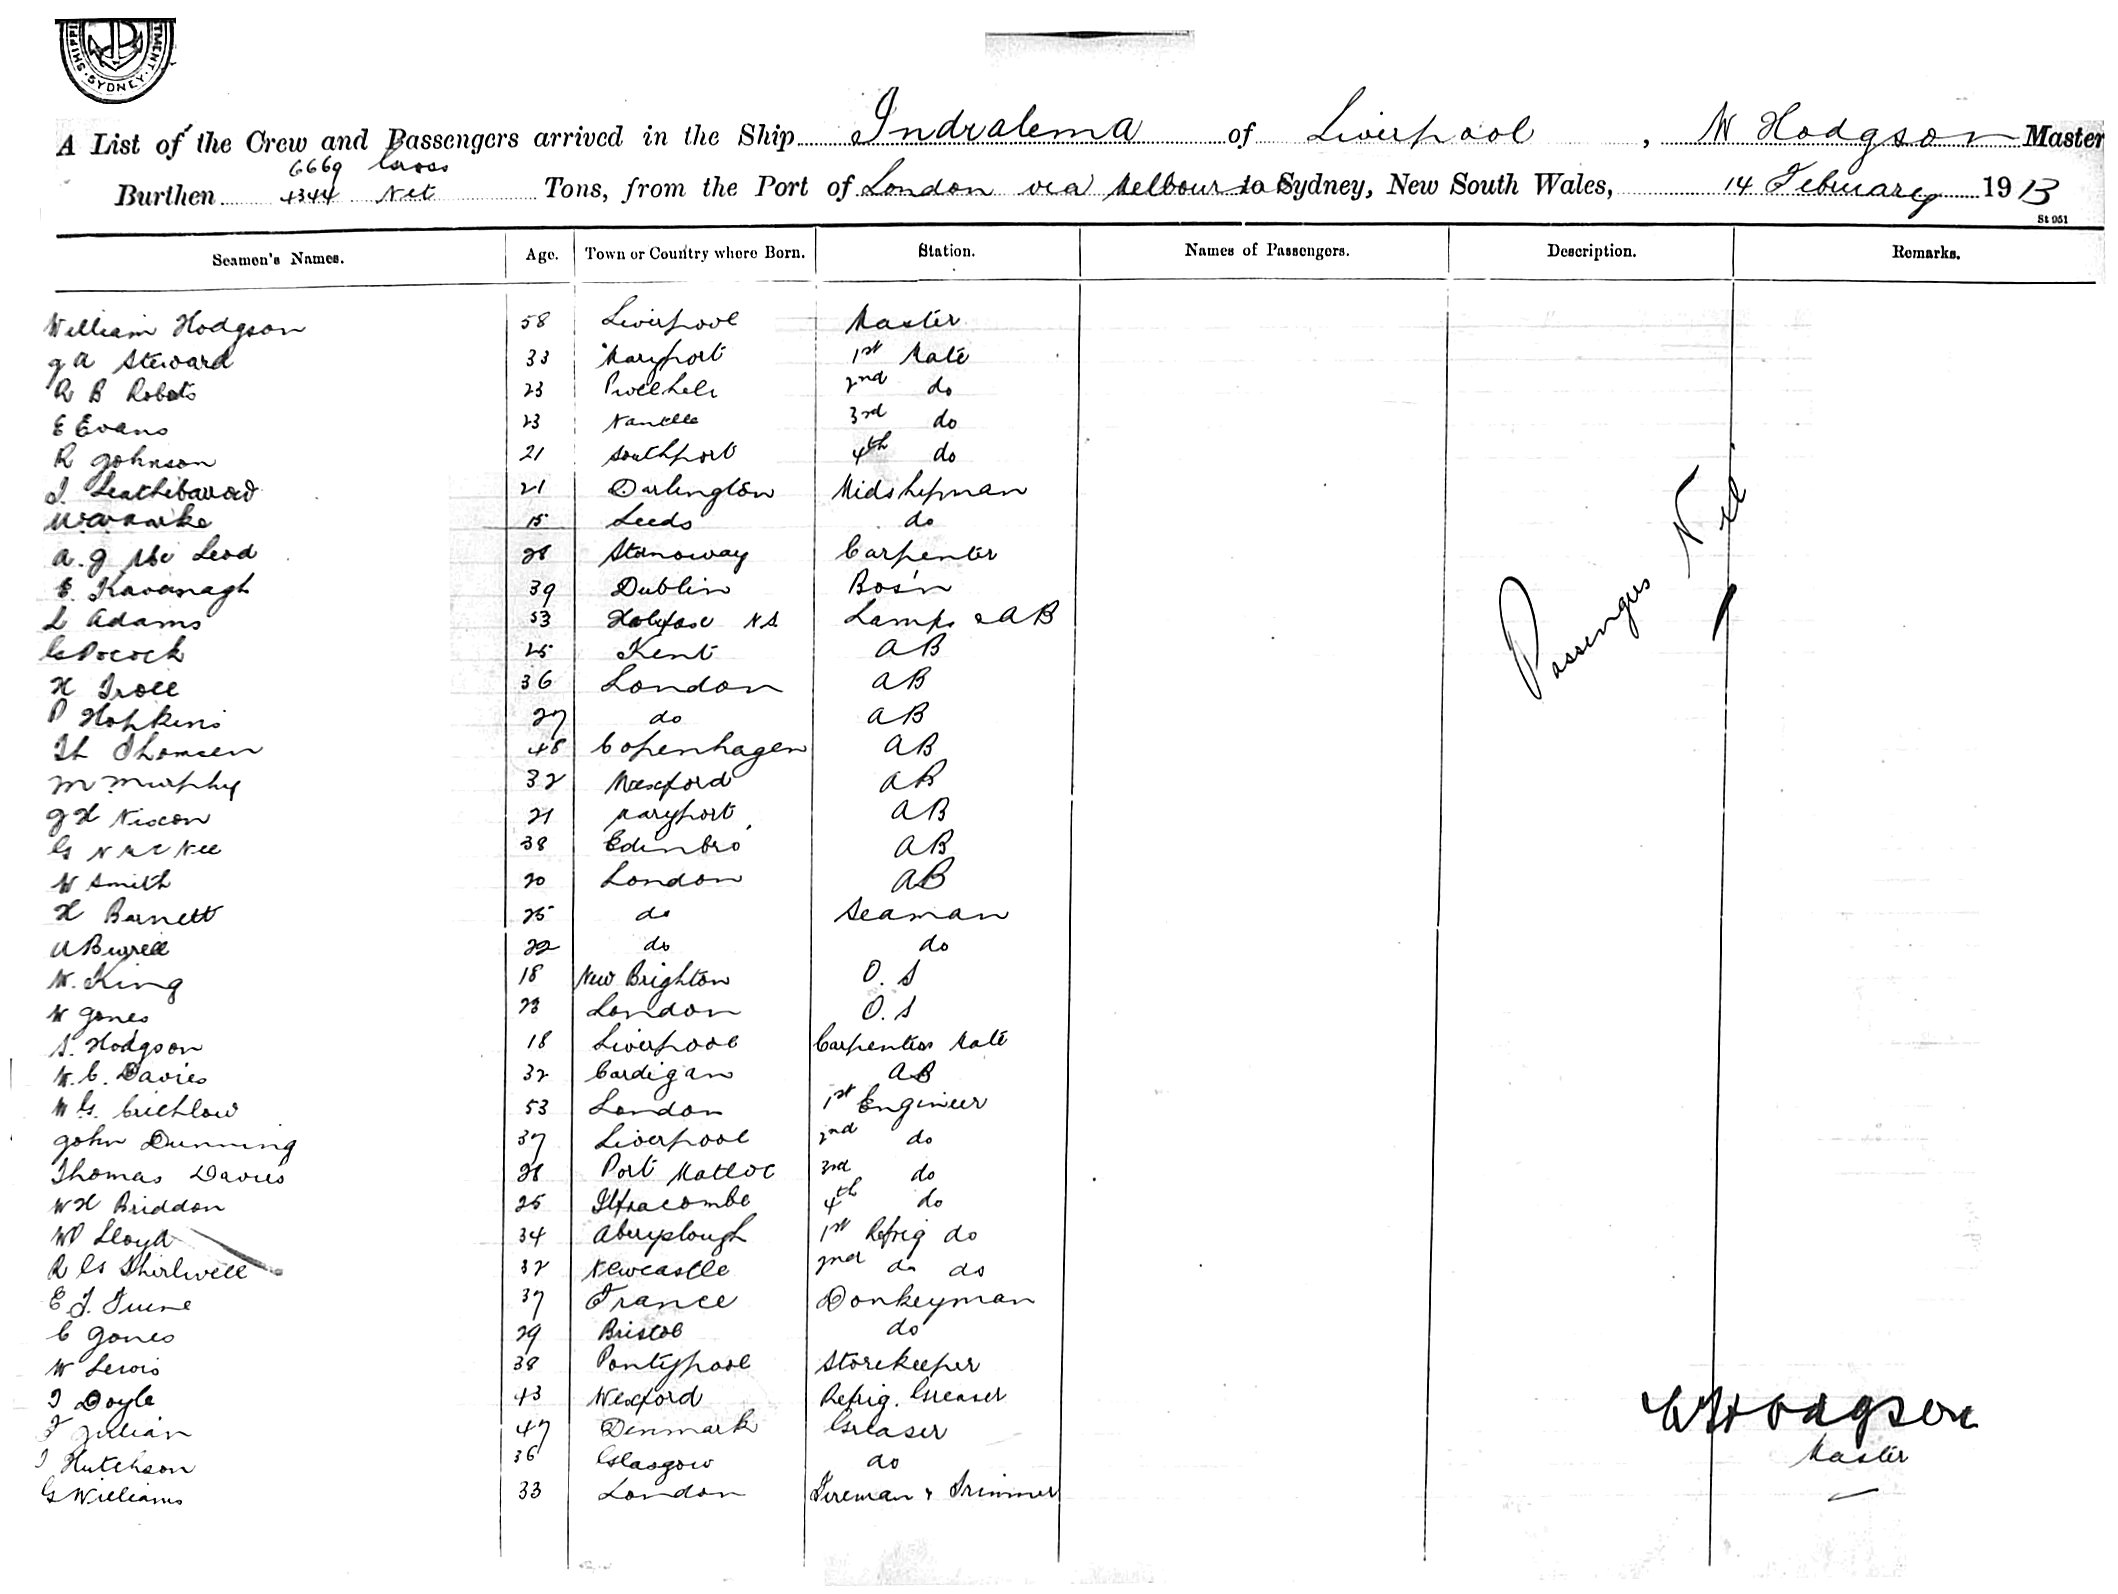 SHIPPI TMENT. SYDNEY.
A List of the Crew and Passengers arrived in the Ship Indralema of Liverpool, W Hodgson Master
6669 Gross
Burthen 4344 Net Tons, from the Port of London via Melbour to Sydney, New South Wales, 14 February 1913
St 951
Seamen's Names. Age. Town or Country where Born. Station. Names of Passengers. Description. Remarks.
William Hodgson 58 Liverpool Master
J A Steward 33 Maryport 1st Mate
R B Robets 23 Pwllheli 2nd do
E Evans 23 3rd do
R Johnson 21 Southport 4th do
J. Leathebarrow 21 Darlington Midshipman
15 Leeds do
A. J Mc Leod 28 Stornoway Carpenter
E. Kavanagh 39 Dublin Bos'n
L Adams 53 Halifax N.S. Lamps & AB
G Pocock 25 Kent AB
H Troll 36 London AB
P Hopkins 27 do AB
Th Thomsen 48 Copenhagen AB
M Murphy 32 Wexford AB
J H Nixon 21 Maryport AB
G N Mc Nee 38 Edinbro' AB
W Smith 20 London AB
H Barnett 25 do Seaman
A Burrell 22 do do
W. King 18 New Brighton O. S
W Jones 23 London O. S
S. Hodgson 18 Liverpool Carpenters Mate
W. C. Davies 32 Cardigan AB
W G. Crichlow 53 London 1st Engineer
John Dunning 37 Liverpool 2nd do
Thomas Davies 28 Port Madoc 3rd do
W H Briddon 25 Ilfracombe 4th do
W P Lloyd 34 1st Refrig do
R G Thirlwell 32 Newcastle 2nd do do
E J. 37 France Donkeyman
C Jones 29 Bristol do
W Lewis 38 Pontypool Storekeeper
J Doyle 43 Wexford Refrig. Greaser
F Julian 47 Denmark Greaser
J Hutchson 36 Glasgow do
G Williams 33 London Fireman & Trimmer
Passengers Nil
W Hodgson
Master